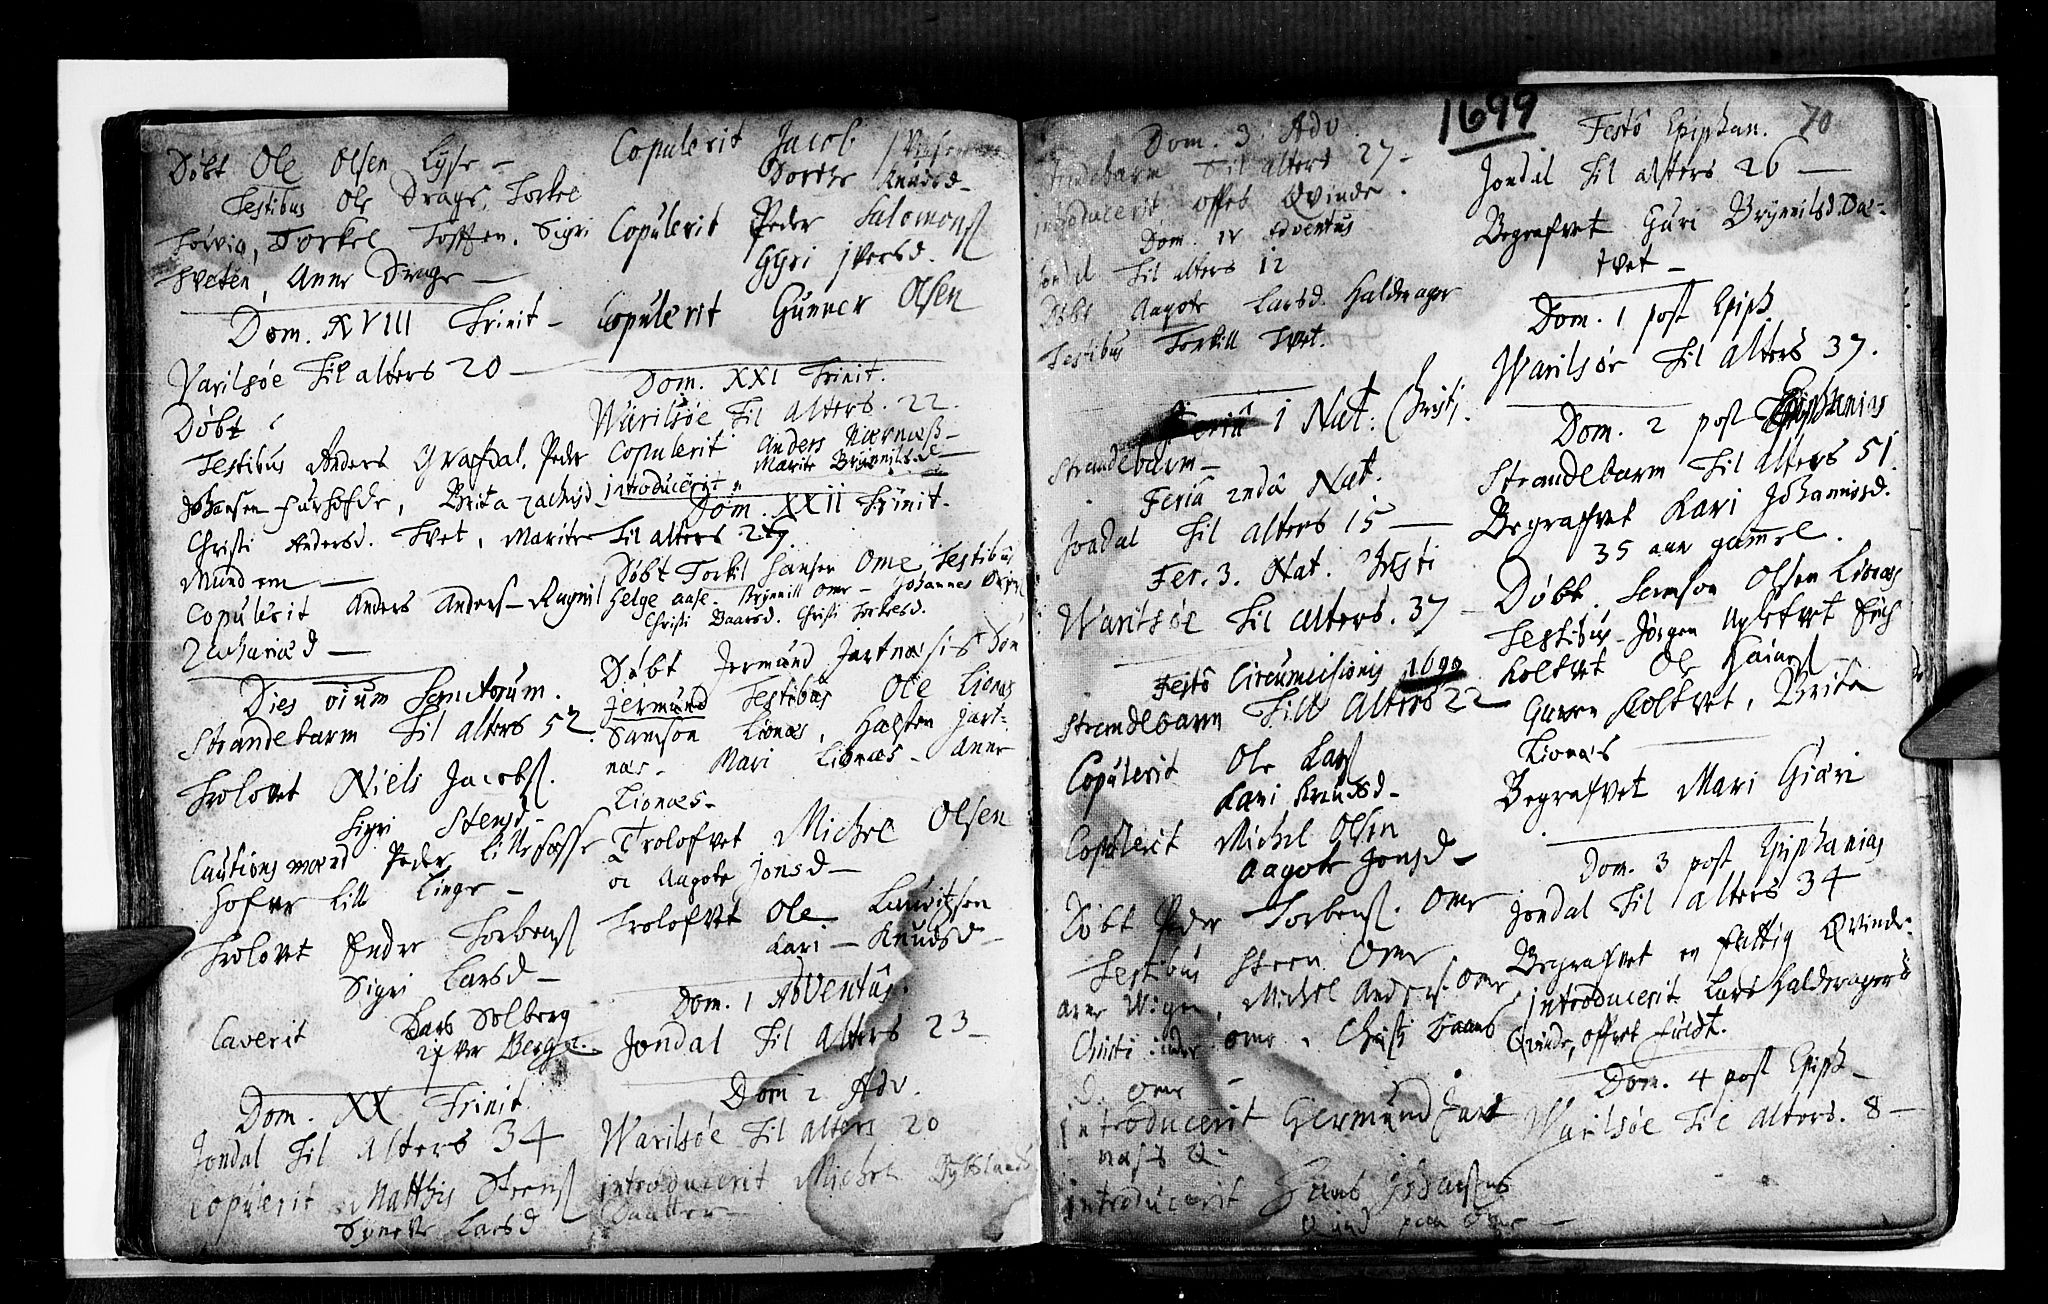 Døbt Ole Olsen Lysse -
Testibus Ole Drags, Torkel
Torvig, Torkel Toften, Sigri
Tveten, Anne Drage -
Dom. XVIII Trinit -
Varilsøe Til alters 20 -
Døbt
Testibus Anders Grafdal, Peder
Johansen, Brita Zachrisd
Christi Andersd. Tvet, Marite
Mundem -
Copulerit Anders Anders - Ragnil
Zachariæd -
Dies oium Sanctorum.
Strandebarm Til alters 52
Trolovet Niels Jacobs.
Sigri Stensd.
Cautions mænd Peder Lillefosse
Lille Linge -
Trolovet Endre Torbens
Sigri Larsd -
Caverit Lars Solberg
Berge
Dom. XX Trinit
Jondal Til Alters 34
Copulerit Matthis Steens
Syneve Larsd
Copulerit Jacob
Dorthe Knudsd -
Copulerit Peder Salomons
Gyri Iversd.
Copulerit Gunner Olsen
Dom. XXI Trinit.
Warilsøe Til alters. 22.
Copulerit Anders Nærnæss -
Marite Brynnilsd -
introducerit
Dom. XXII Trinit.
Til alters
Døbt Torkil Hansen Ome Testibus
Helge aase. Brynnill Ome - Johannes
Christi Baarsd. Christi Torkesd.
Døbt Jermund Jartnæsis Søn
Jermund Testibus Ole Lionæs
Samson Lionæs, Halsten Jart-
næs - Mari Lionæs - Anne
Lionæs -
Trolofvet Michel Olsen
oc Aagote Jonsd -
Trolofvet Ole Lauritzsen
Kari - Knudsd -
Dom. 1 Adventus.
Jondal Til Alters 23 -
Dom 2 Adv.
Warilsøe Til alters 20
introducerit Michel
Daatter -
Dom. 3 Adv
Strandebarm Til alters 27 -
introducerit offes Qvinde.
Dom. IV Adventus
Jondal Til alters 12
Døbt Aagote Larsd. Haldrager
Testibus Torkill Tvet.
Feriâ 1 Nat. Christi.
Strandebarm -
Feriâ 2nda Nat.
Jondal Til alters 15 -
Fer. 3. Nat. Christi
Warilsøe Til alters. 37 -
Festô Circumcisionis 1699
Strandebarm Till Alters 22
Copulerit Ole Lars
Kari Knudsd -
Copulerit Michel Olsen
Aagote Jonsd -
Døbt Peder Torbens. Ome
Testibus Steen Ome
Arne Wigen, Michel Anders. Ome
Christi Ome, Christi Baars
D. Ome -
introducerit Germund Jart
næsis Q -
introducerit Hans
Qvind paa Ome -
1699
Festô Epiphan. 70
Jondal Til alters 26 -
Begrafvet Guri Brynnilsd. Dæ-
tvet -
Dom. 1 post Epiph
Warilsøe Til alters 37.
Dom. 2 post Epiphanias
Strandebarm Til alters 51.
Begrafvet Kari Johannisd.
35 aar gammel.
Døbt Samson Olsen Lionæs
Testibus Jørgen Apletvet Erich
Koltvet Ole Hainess
Gunen Koltvet, Brita
Lionæs
Begrafvet Mari Giæri
Dom. 3 post Epiphanias
Jondal Til alters 34
Begrafvet en fattig Qvinde.
introducerit Lars Haldragers
Qvinde, offret fuldt.
Dom. 4 post Epiph -
Warilsøe Til alters. 8 -